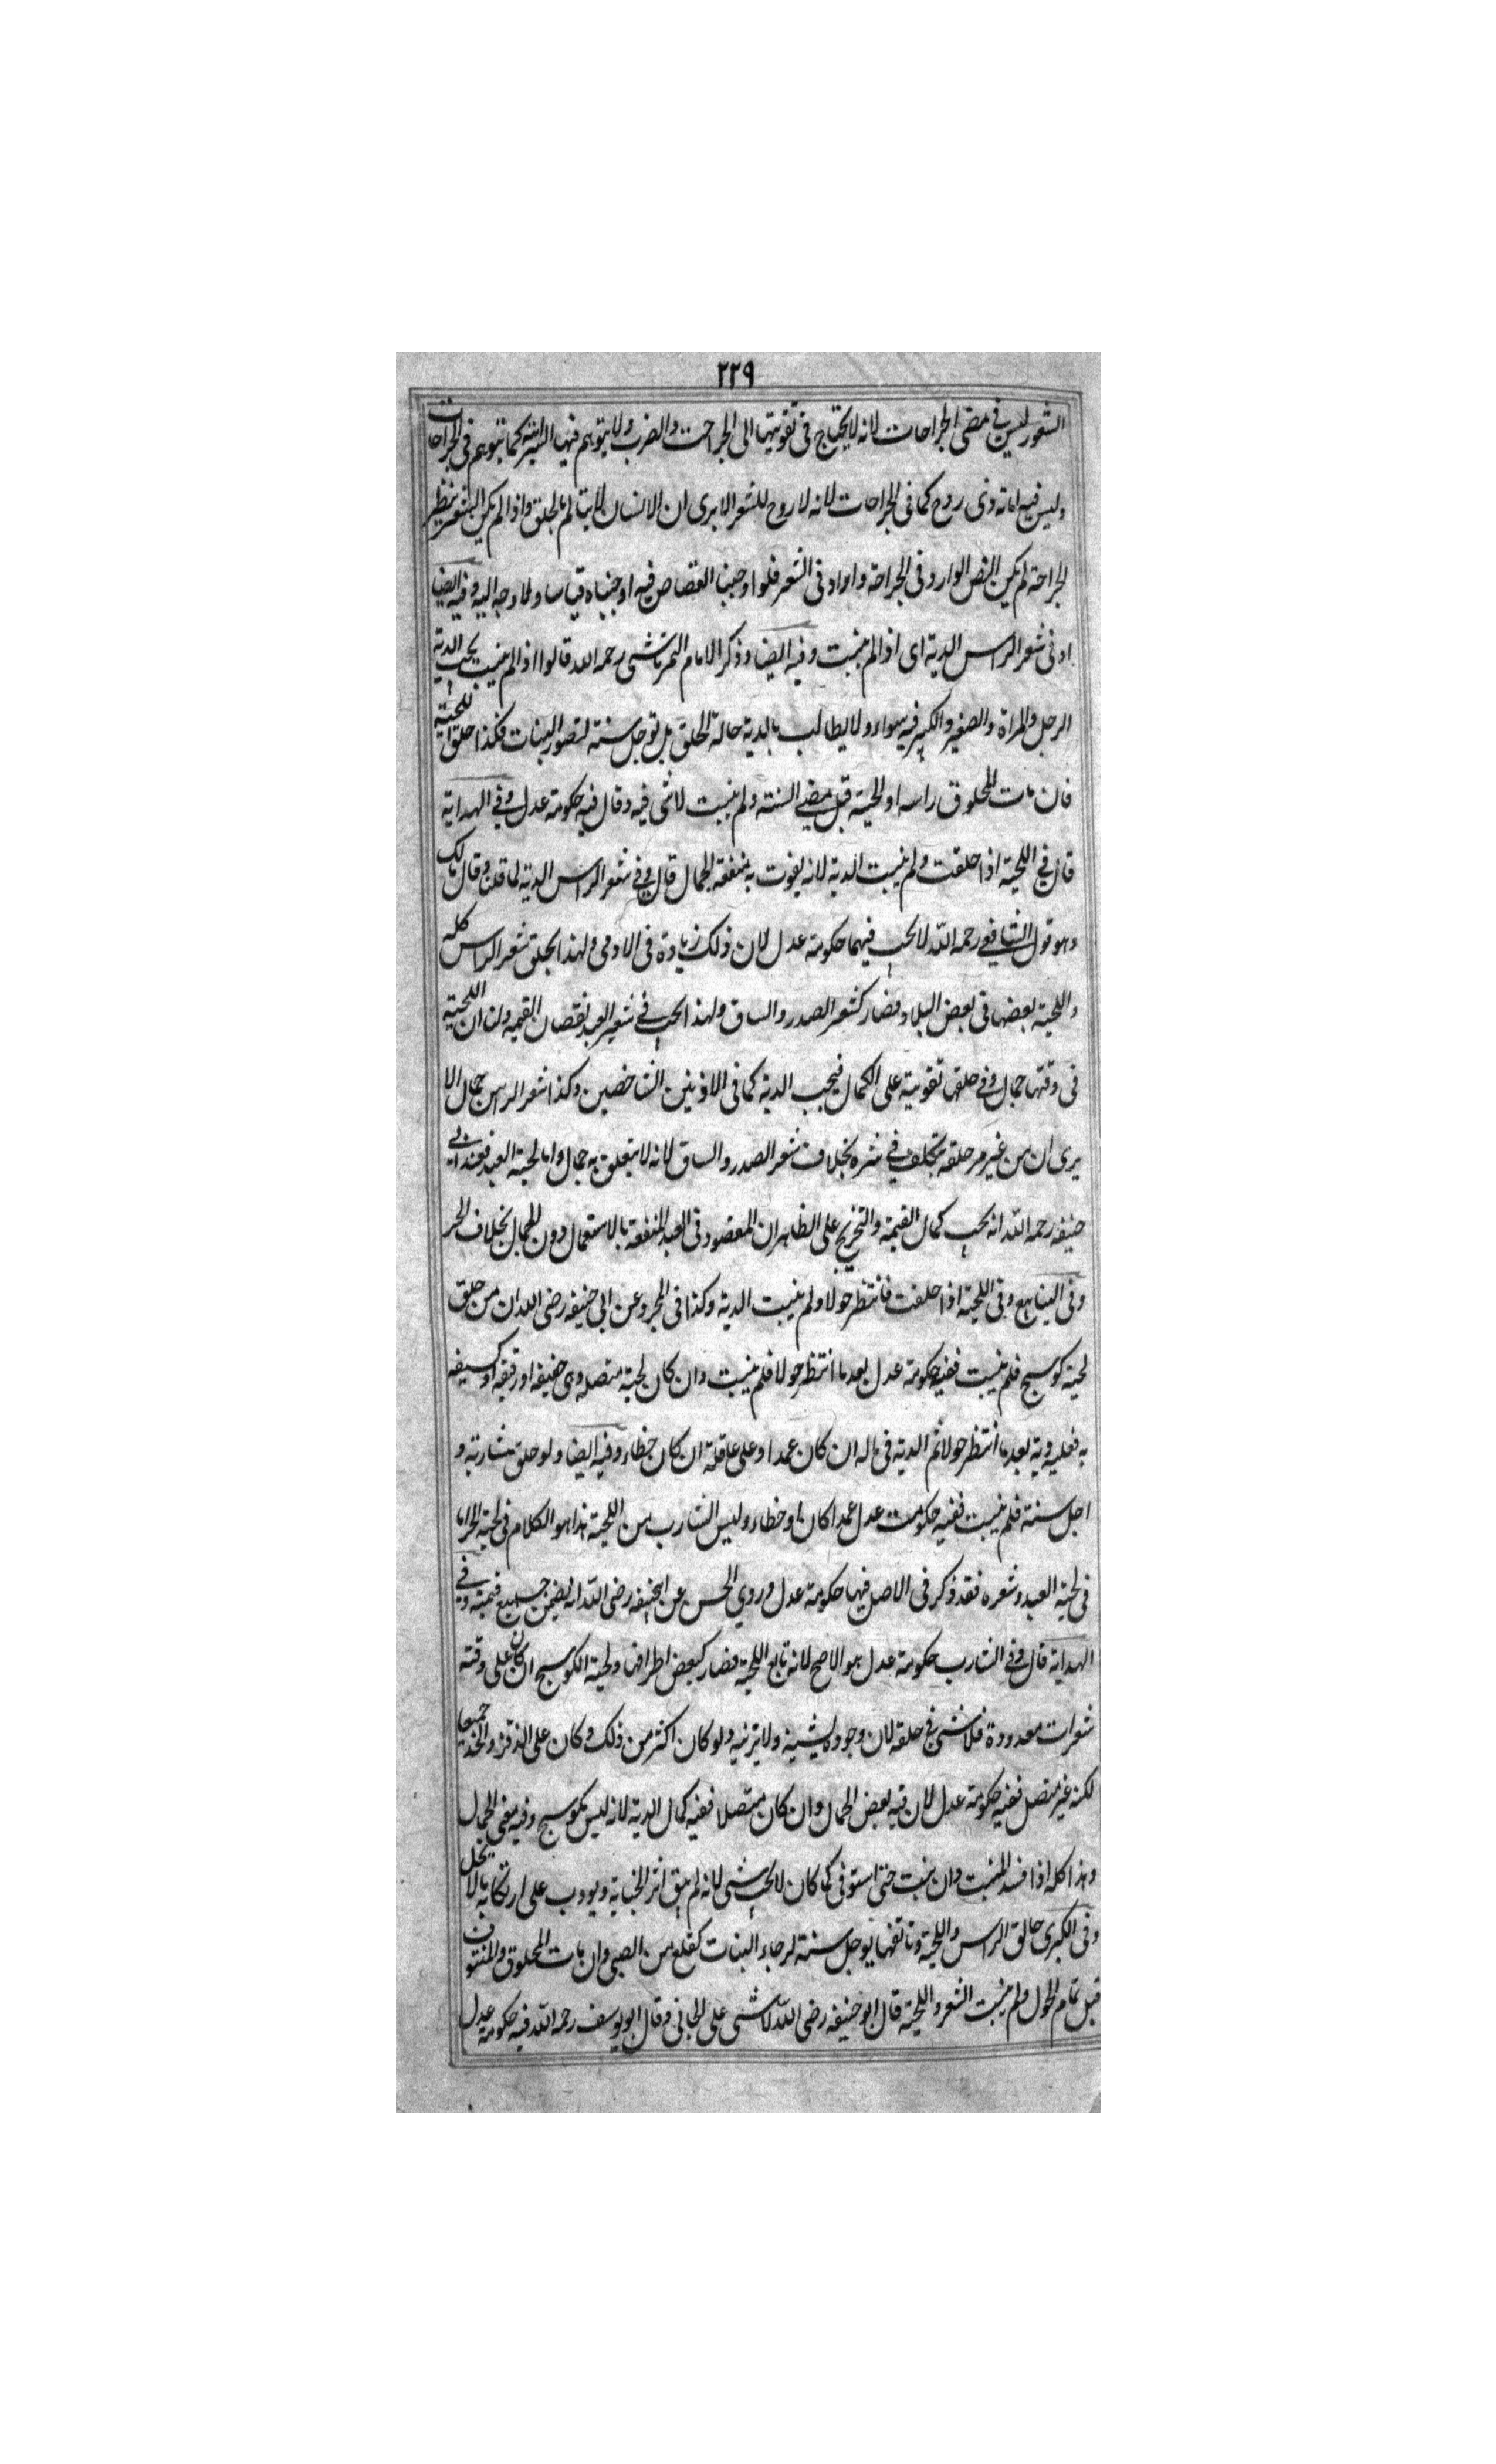 ٢٢٩
الشعور ليس فى معنى الجراحات لانه لا يحتاج فى تفويتها الى الجراحت والضرب ولا يتوهم فيها السراية كما يتوهم فى الجراحات
وليس فيه اماتة ذى روح كما فى الجراحات لانه لا روح للشعر الا يرى ان الانسان لا يتالم بالحلق واذا لم يكن الشعر نظير
الجراحة لم يكن النص الوارد فى الجراحة واردا فى الشعر فلو اوجبنا القصاص فيه اوجبناه قياسا ولا وجه اليه وفيه ايضا
او فى شعر الراس الدية اى اذا لم ينبت وفيه ايضا وذكر الامام التمرتاشى رحمه الله قالوا اذا لم ينبت يجب الدية
الرجل والمراة والصغير والكبير فيه سواء ولا يطالب بالدية حالة الحلق بل توجل سنة لتصور النبات فكذا حلق اللحية
فان مات المحلوق راسه او لحيته قبل مضى السنة ولم ينبت لا شى فيه وقال فيه حكومة عدل وفى الهداية
قال فى اللحية اذا حلقت ولم ينبت الدية لانه يفوت به منفعة الجمال قال وفى شعر الراس الدية لما قلنا وقال مالك
وهو قول الشافعى رحمه الله لا يجب فيهما حكومة عدل لان ذلك زيادة فى الادمى ولهذا يحلق شعر الراس كله
واللحية بعضها فى بعض البلاد فصار كشعر الصدر والساق ولهذا يجب فى شعر العبد نقصان القيمه ولنا ان اللحية
فى وقتها جمال وفى حلقها تفوية على الكمال فيجب الدية كما فى الاذنين الشاخصين وكذا شعر الراس جمال الا
يرى ان من غير مر حلقه يتكلف فى ستره بخلاف شعر الصدر والساق لانه لا يتعلق به جمال واما لحية العبد فعند ابى
حنيفه رحمه الله انه يجب كمال القيمة والتخريج على الظاهر ان المقصود فى العبد المنفعة بالاستعمال دون الجمال بخلاف الحر
وفى الينابيع وفى اللحية اذا حلقت فانتظر حولا ولم ينبت الدية وكذا فى المجرد عن ابى حنيفه رضى الله ان من حلق
لحية كوسج فلم ينبت ففيه حكومة عدل بعد ما انتظر حولا فلم ينبت وان كان لحية متصله وهى خفيفه او رقيقه او كسيفه
به فعليه دية بعد ما انتظر حولا ثم الدية فى ماله ان كان عمدا وعلى عاقلة ان كان خطاء وفيه ايضا ولو حلق شاربه و
اجل سنة فلم ينبت ففيه حكومت عدل عمدا كان او خطاء وليس الشارب من اللحية هذا هو الكلام فى لحية الحر اما
فى لحية العبد وشعره فقد ذكر فى الاصل فيها حكومة عدل وروى الحسن عن ابحنيفه رضى الله انه يضمن جميع قيمته وفى
الهداية قال وفى الشارب حكومة عدل هو الاصح لانه تابع اللحية فصار كبعض اطرافها ولحية الكوسج ان كان على ذقنه
شعرات معدودة فلا شى فى حلقه لان وجوده يشينه ولا يزنيه ولو كان اكثر من ذلك وكان على الذقن والخد جميعا
لكنه غير متصل ففيه حكومة عدل لان فيه بعض الجمال وان كان متصلا ففيه كمال الدية لانه ليس بكوسج وفيه معنى الجمال
وهذا كله اذا فسد المنبت وان نبت حتى استوفى كما كان لا يجب شى لانه لم يبق اثر الجناية ويودب على ارتكابه ما لا يحل
وفى الكبرى حالق الراس واللحية وناتفها يوجل سنة لرجاء النبات كقلع سن الصبى وان مات المحلوق والمنتوف
قبل تمام الحول ولم ينبت الشعر واللحية قال ابو حنيفه رضى الله لا شى على الجانى وقال ابو يوسف رحمه الله فيه حكومة عدل